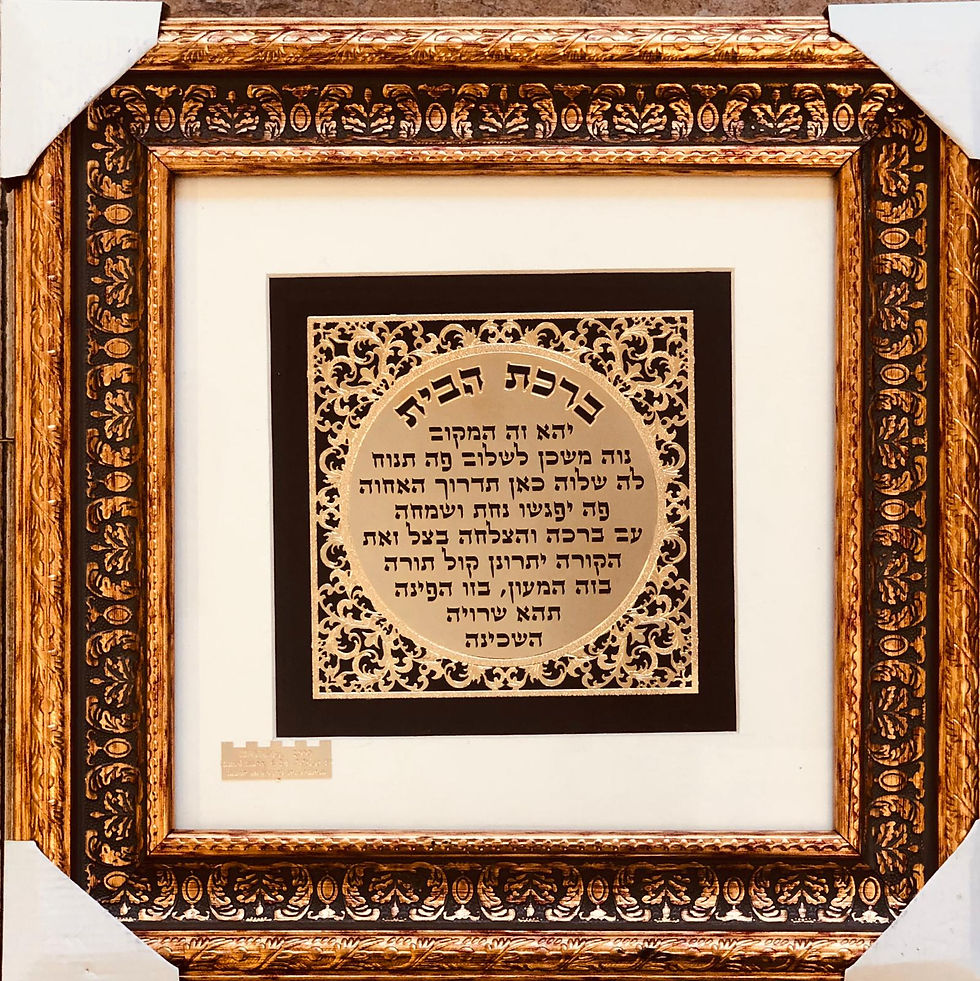 ברכת הבית
יהא זה המקום
נוה משכן לשלום פה תנוח
לה שלוה כאן תדרוך האחוה
פה יפגשו נחת ושמחה
עם ברכה והצלחה בצל זאת
הקורה יתרונן קול תורה
בזה המעון, בזו הפינה
תהא שרויה
השכינה